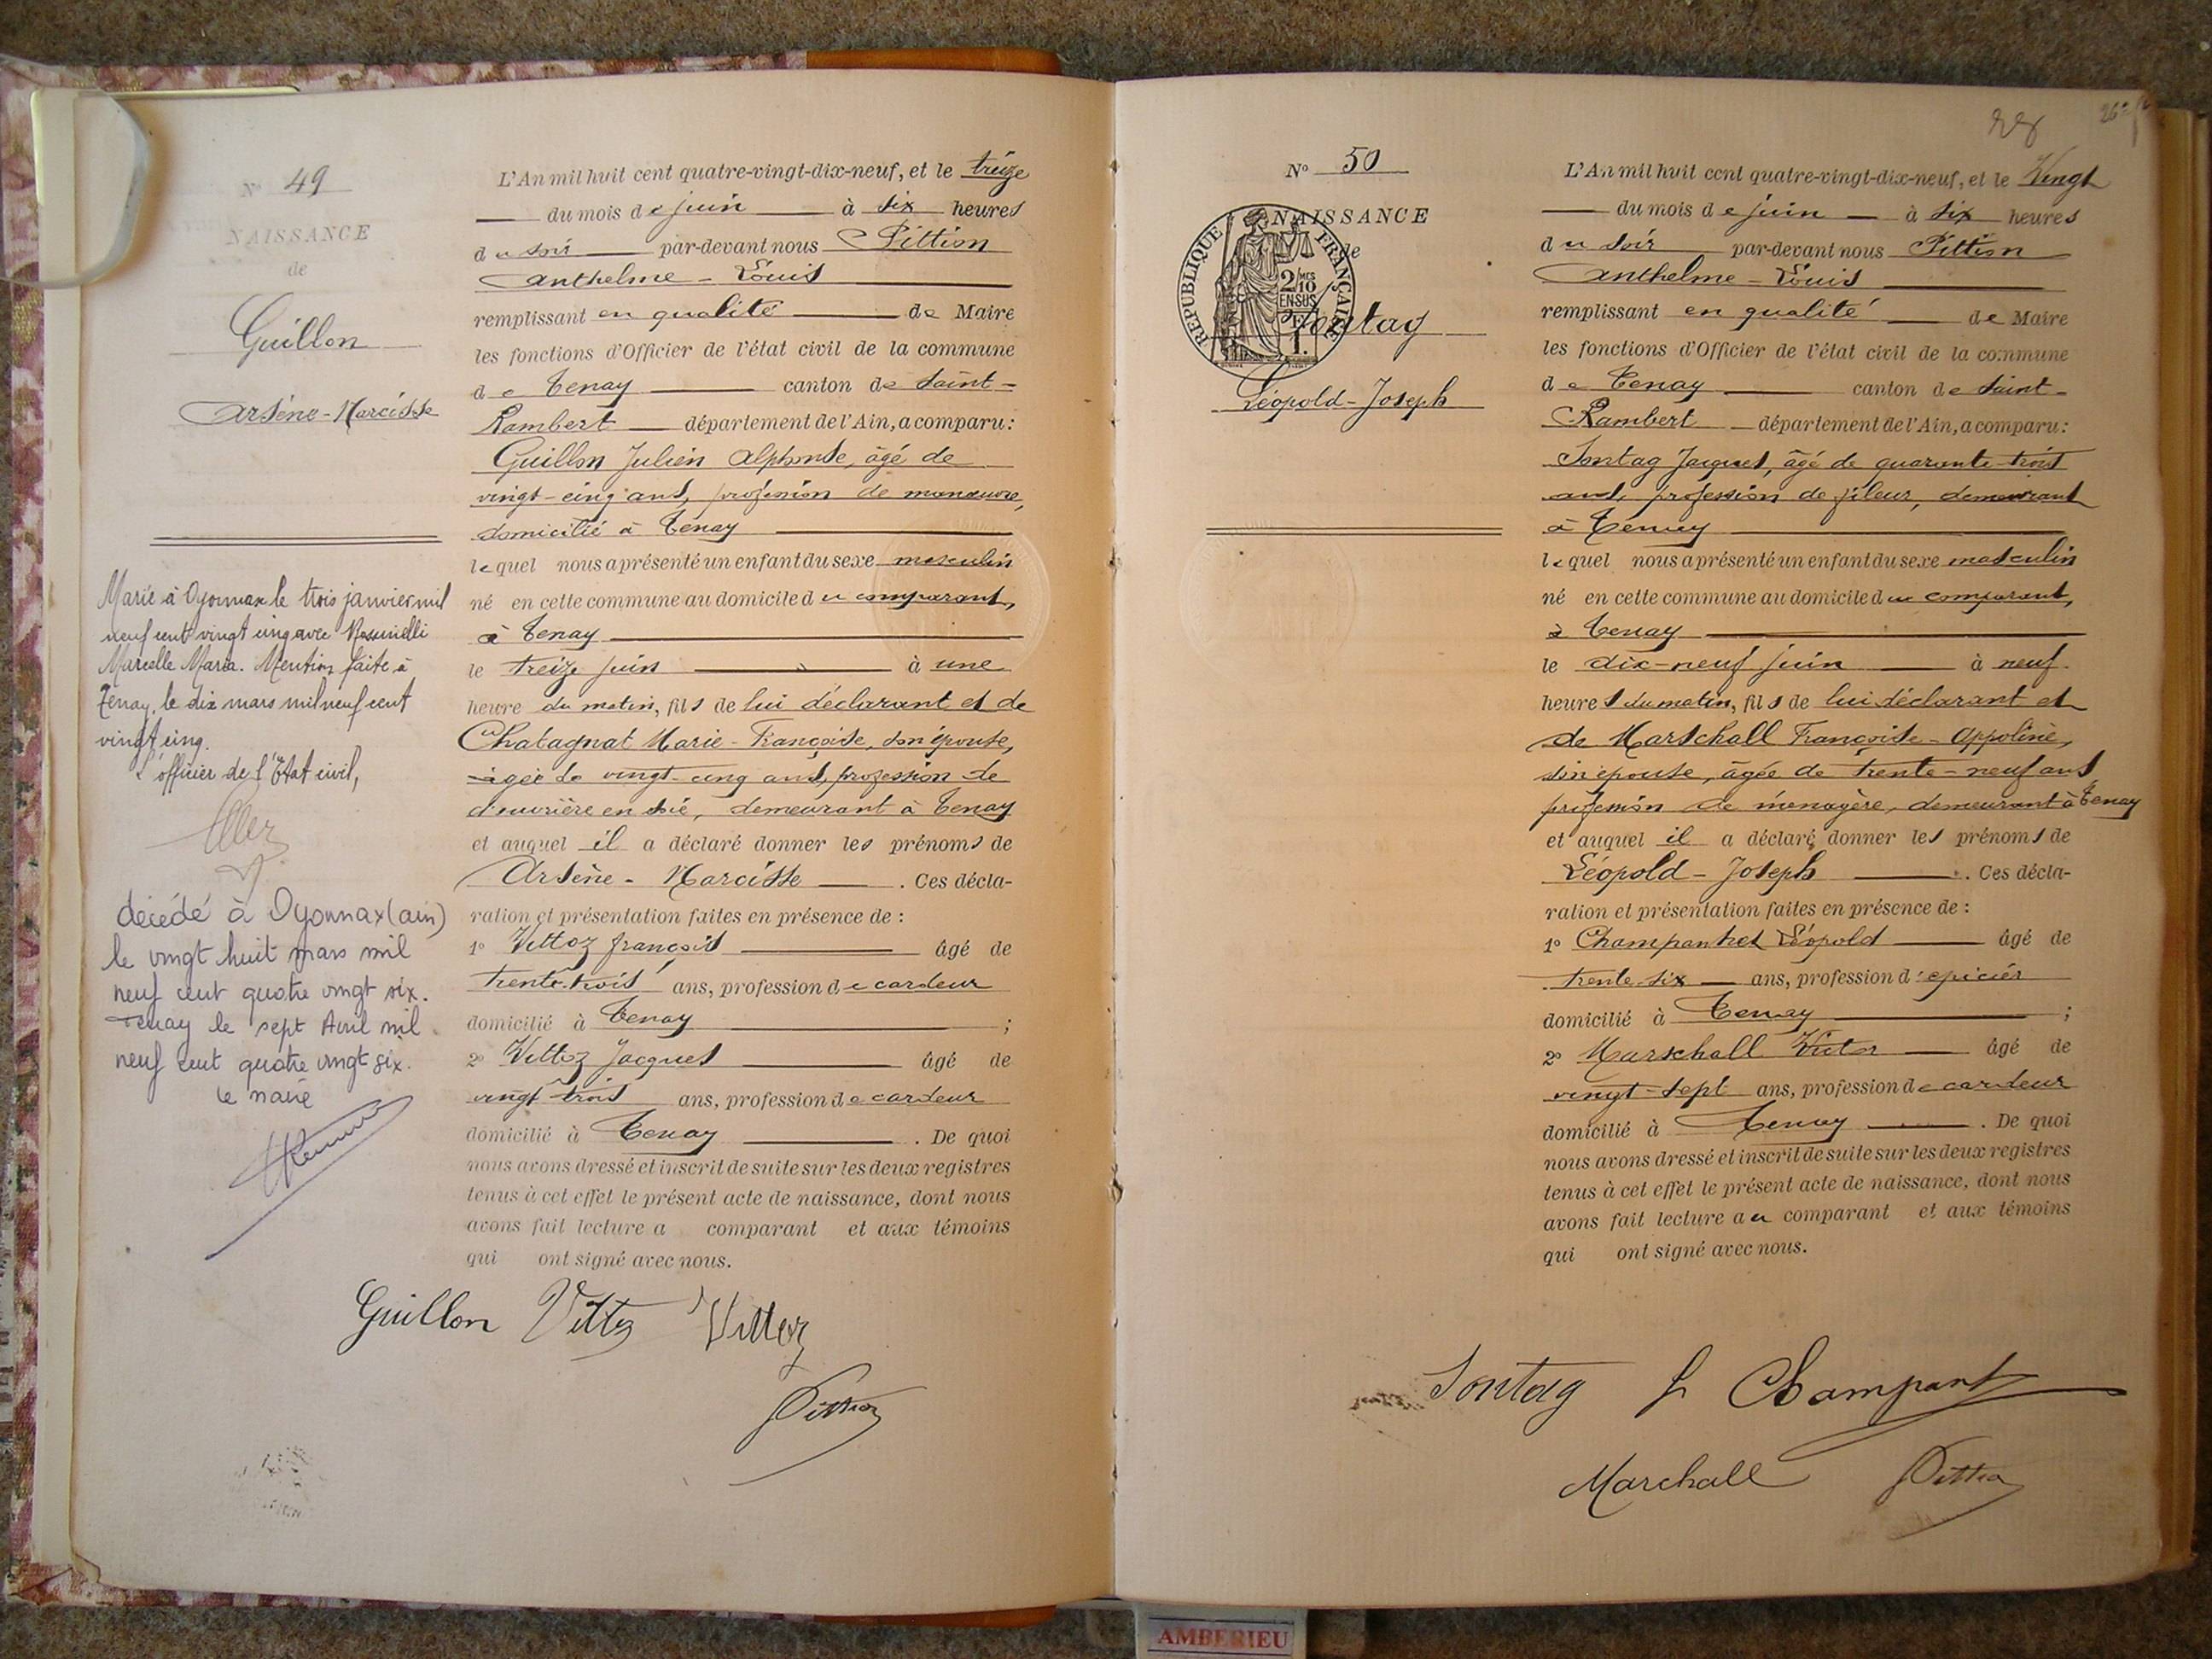 N° 49
NAISSANCE
de
Guillon
Arsène-Narcisse
Marié à Oyonnax le trois janvier mil
neuf cent vingt cinq avec
Marcelle Maria. Mention faite à
Tenay, le dix mars mil neuf cent
vingt cinq.
L'officier de l'Etat civil,
décédé à Oyonnax (ain)
le vingt huit mars mil
neuf cent quatre vingt six.
Tenay le sept Avril mil
neuf cent quatre vingt six.
le maire
L'An mil huit cent quatre-vingt-dix-neuf, et le treize
du mois de juin à six heures
du soir par-devant nous Pittion
Anthelme-Louis
remplissant en qualité de Maire
les fonctions d'Officier de l'état civil de la commune
de Tenay canton de Saint-
Rambert département de l'Ain, a comparu:
Guillon Julien Alphonse, âgé de
vingt-cinq ans, profession de manœuvre,
domicilié à Tenay
lequel nous a présenté un enfant du sexe masculin
né en cette commune au domicile du comparant,
à Tenay
le treize juin à une
heure du matin, fils de lui déclarant et de
Chatagnat Marie-Françoise, son épouse,
âgée de vingt-cinq ans, profession de
d'ouvrière en soie, demeurant à Tenay
et auquel il a déclaré donner les prénoms de
Arsène-Narcisse. Ces décla-
ration et présentation faites en présence de :
1° Vittoz françois âgé de
trente-trois ans, profession de cardeur
domicilié à Tenay ;
2° Vittoz Jacques âgé de
vingt trois ans, profession de cardeur
domicilié à Tenay. De quoi
nous avons dressé et inscrit de suite sur les deux registres
tenus à cet effet le présent acte de naissance, dont nous
avons fait lecture a comparant et aux témoins
qui ont signé avec nous.
Guillon Vittoz Vittoz
Pittion
N° 50
NAISSANCE
de
Sontag
Léopold-Joseph
RÉPUBLIQUE FRANÇAISE
2/10 MES
EN SUS
1F
L'An mil huit cent quatre-vingt-dix-neuf, et le Vingt
du mois de juin à six heures
du soir par-devant nous Pittion
Anthelme-Louis
remplissant en qualité de Maire
les fonctions d'Officier de l'état civil de la commune
de Tenay canton de Saint-
Rambert département de l'Ain, a comparu:
Sontag Jacques, âgé de quarante-trois
ans, profession de fileur, demeurant
à Tenay
lequel nous a présenté un enfant du sexe masculin
né en cette commune au domicile du comparant,
à Tenay
le dix-neuf juin à neuf
heures du matin, fils de lui déclarant et
de Marschall Françoise-Appoline,
son épouse, âgée de trente-neuf ans
profession de ménagère, demeurant à Tenay
et auquel il a déclaré donner les prénoms de
Léopold-Joseph. Ces décla-
ration et présentation faites en présence de :
1° Champanhet Léopold âgé de
trente-six ans, profession d'épicier
domicilié à Tenay ;
2° Marschall Victor âgé de
vingt-sept ans, profession de cardeur
domicilié à Tenay. De quoi
nous avons dressé et inscrit de suite sur les deux registres
tenus à cet effet le présent acte de naissance, dont nous
avons fait lecture au comparant et aux témoins
qui ont signé avec nous.
Sontag L Champant
Marchall Pittion
AMBERIEU